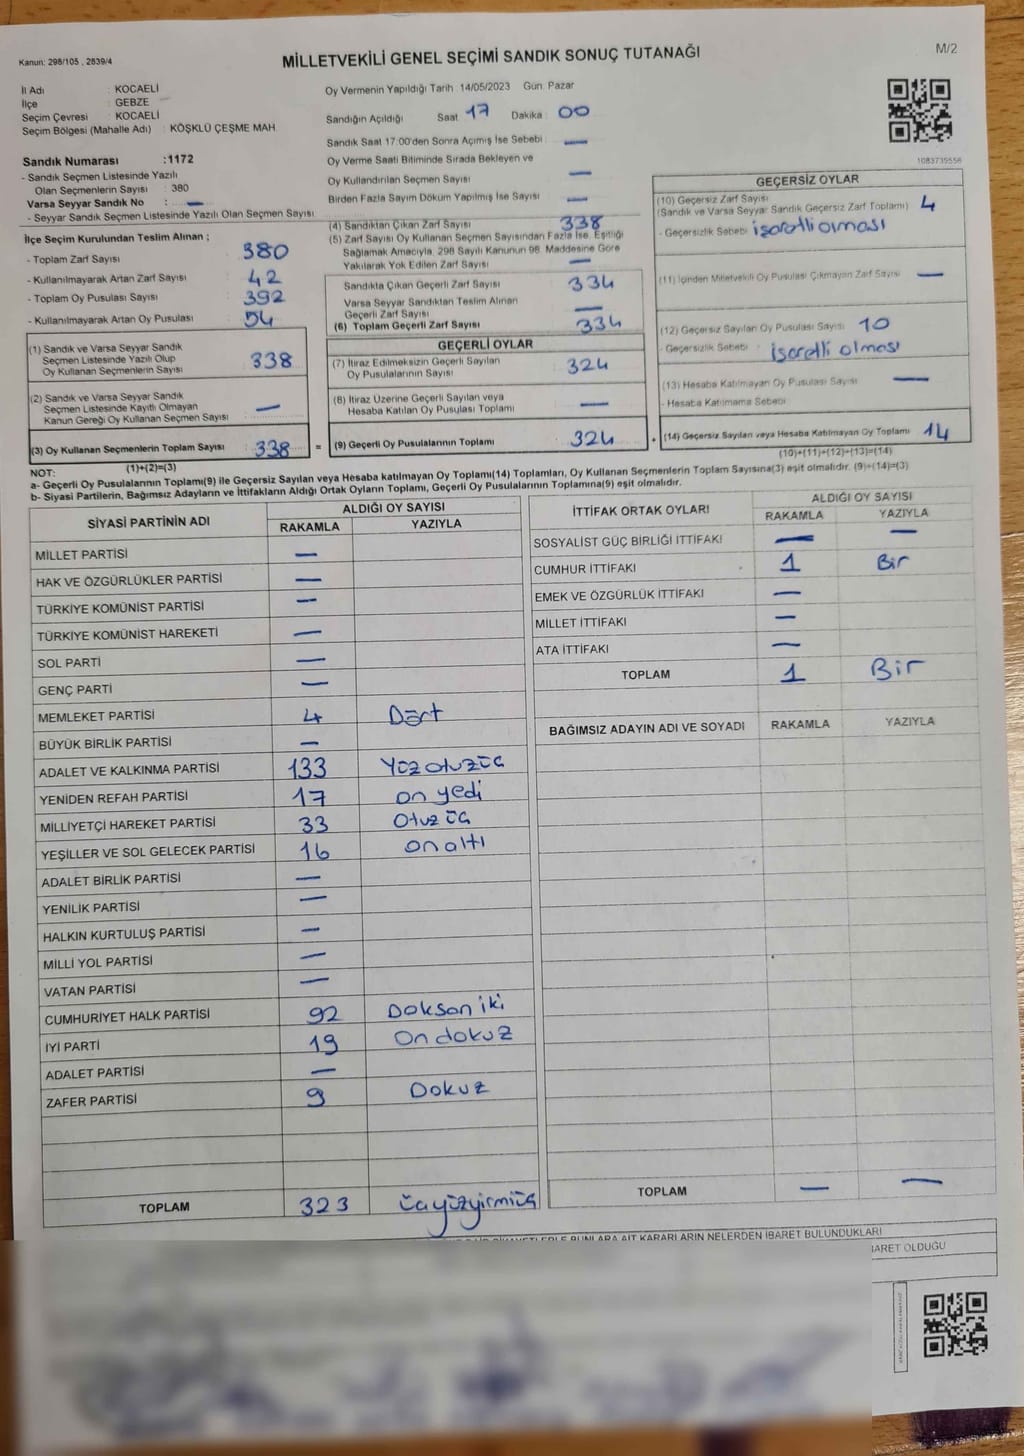 Kanun: 298/105 , 2839/4
MİLLETVEKİLİ GENEL SEÇİMİ SANDIK SONUÇ TUTANAĞI
M/2
İl Adı : KOCAELİ
İlçe : GEBZE
Seçim Çevresi : KOCAELİ
Seçim Bölgesi (Mahalle Adı) : KÖŞKLÜ ÇEŞME MAH.
Oy Vermenin Yapıldığı Tarih 14/05/2023 Gün: Pazar
Sandığın Açıldığı Saat 17 Dakika : 00
Sandık Saat 17:00'den Sonra Açımış İse Sebebi : —
Oy Verme Saati Bitiminde Sırada Bekleyen ve
Oy Kullandırılan Seçmen Sayısı —
Birden Fazla Sayım Döküm Yapılmış İse Sayısı —
1083739556
Sandık Numarası :1172
- Sandık Seçmen Listesinde Yazılı
Olan Seçmenlerin Sayısı : 380
Varsa Seyyar Sandık No : —
- Seyyar Sandık Seçmen Listesinde Yazılı Olan Seçmen Sayısı
İlçe Seçim Kurulundan Teslim Alınan ;
- Toplam Zarf Sayısı 380
- Kullanılmayarak Artan Zarf Sayısı 42
- Toplam Oy Pusulası Sayısı 392
- Kullanılmayarak Artan Oy Pusulası 54
(1) Sandık ve Varsa Seyyar Sandık
Seçmen Listesinde Yazılı Olup
Oy Kullanan Seçmenlerin Sayısı 338
(2) Sandık ve Varsa Seyyar Sandık
Seçmen Listesinde Kayıtlı Olmayan
Kanun Gereği Oy Kullanan Seçmen Sayısı —
(3) Oy Kullanan Seçmenlerin Toplam Sayısı 338 =
(1)+(2)=(3)
(4) Sandıktan Çıkan Zarf Sayısı 338
(5) Zarf Sayısı Oy Kullanan Seçmen Sayısından Fazla İse, Eşitliği
Sağlamak Amacıyla, 298 Sayılı Kanunun 98. Maddesine Göre
Yakılarak Yok Edilen Zarf Sayısı —
Sandıkta Çıkan Geçerli Zarf Sayısı 334
Varsa Seyyar Sandıktan Teslim Alınan
Geçerli Zarf Sayısı —
(6) Toplam Geçerli Zarf Sayısı 334
GEÇERLİ OYLAR
(7) İtiraz Edilmeksizin Geçerli Sayılan
Oy Pusulalarının Sayısı 324
(8) İtiraz Üzerine Geçerli Sayılan veya
Hesaba Katılan Oy Pusulası Toplamı —
(9) Geçerli Oy Pusulalarının Toplamı 324 +
GEÇERSİZ OYLAR
(10) Geçersiz Zarf Sayısı 4
(Sandık ve Varsa Seyyar Sandık Geçersiz Zarf Toplamı)
- Geçersizlik Sebebi : işaretli olması
(11) İçinden Milletvekili Oy Pusulası Çıkmayan Zarf Sayısı —
(12) Geçersiz Sayılan Oy Pusulası Sayısı 10
- Geçersizlik Sebebi : işaretli olması
(13) Hesaba Katılmayan Oy Pusulası Sayısı —
- Hesaba Katılmama Sebebi
(14) Geçersiz Sayılan veya Hesaba Katılmayan Oy Toplamı 14
(10)+(11)+(12)+(13)=(14)
NOT:
a- Geçerli Oy Pusulalarının Toplamı(9) ile Geçersiz Sayılan veya Hesaba katılmayan Oy Toplamı(14) Toplamları, Oy Kullanan Seçmenlerin Toplam Sayısına(3) eşit olmalıdır. (9)+(14)=(3)
b- Siyasi Partilerin, Bağımsız Adayların ve İttifakların Aldığı Ortak Oyların Toplamı, Geçerli Oy Pusulalarının Toplamına(9) eşit olmalıdır.
SİYASİ PARTİNİN ADI ALDIĞI OY SAYISI
RAKAMLA YAZIYLA
MİLLET PARTİSİ —
HAK VE ÖZGÜRLÜKLER PARTİSİ —
TÜRKİYE KOMÜNİST PARTİSİ —
TÜRKİYE KOMÜNİST HAREKETİ —
SOL PARTİ —
GENÇ PARTİ —
MEMLEKET PARTİSİ 4 Dört
BÜYÜK BİRLİK PARTİSİ —
ADALET VE KALKINMA PARTİSİ 133 Yüzotuzüç
YENİDEN REFAH PARTİSİ 17 on yedi
MİLLİYETÇİ HAREKET PARTİSİ 33 Otuz üç
YEŞİLLER VE SOL GELECEK PARTİSİ 16 on altı
ADALET BİRLİK PARTİSİ —
YENİLİK PARTİSİ —
HALKIN KURTULUŞ PARTİSİ —
MİLLİ YOL PARTİSİ —
VATAN PARTİSİ —
CUMHURİYET HALK PARTİSİ 92 Doksan iki
İYİ PARTİ 19 On dokuz
ADALET PARTİSİ —
ZAFER PARTİSİ 9 Dokuz
TOPLAM 323 üçyüzyirmiüç
İTTİFAK ORTAK OYLARI ALDIĞI OY SAYISI
RAKAMLA YAZIYLA
SOSYALİST GÜÇ BİRLİĞİ İTTİFAKI — —
CUMHUR İTTİFAKI 1 Bir
EMEK VE ÖZGÜRLÜK İTTİFAKI —
MİLLET İTTİFAKI —
ATA İTTİFAKI —
TOPLAM 1 Bir
BAĞIMSIZ ADAYIN ADI VE SOYADI RAKAMLA YAZIYLA
TOPLAM — —
BUNLARA AİT KARARLARIN NELERDEN İBARET BULUNDUKLARI
OLDUĞU